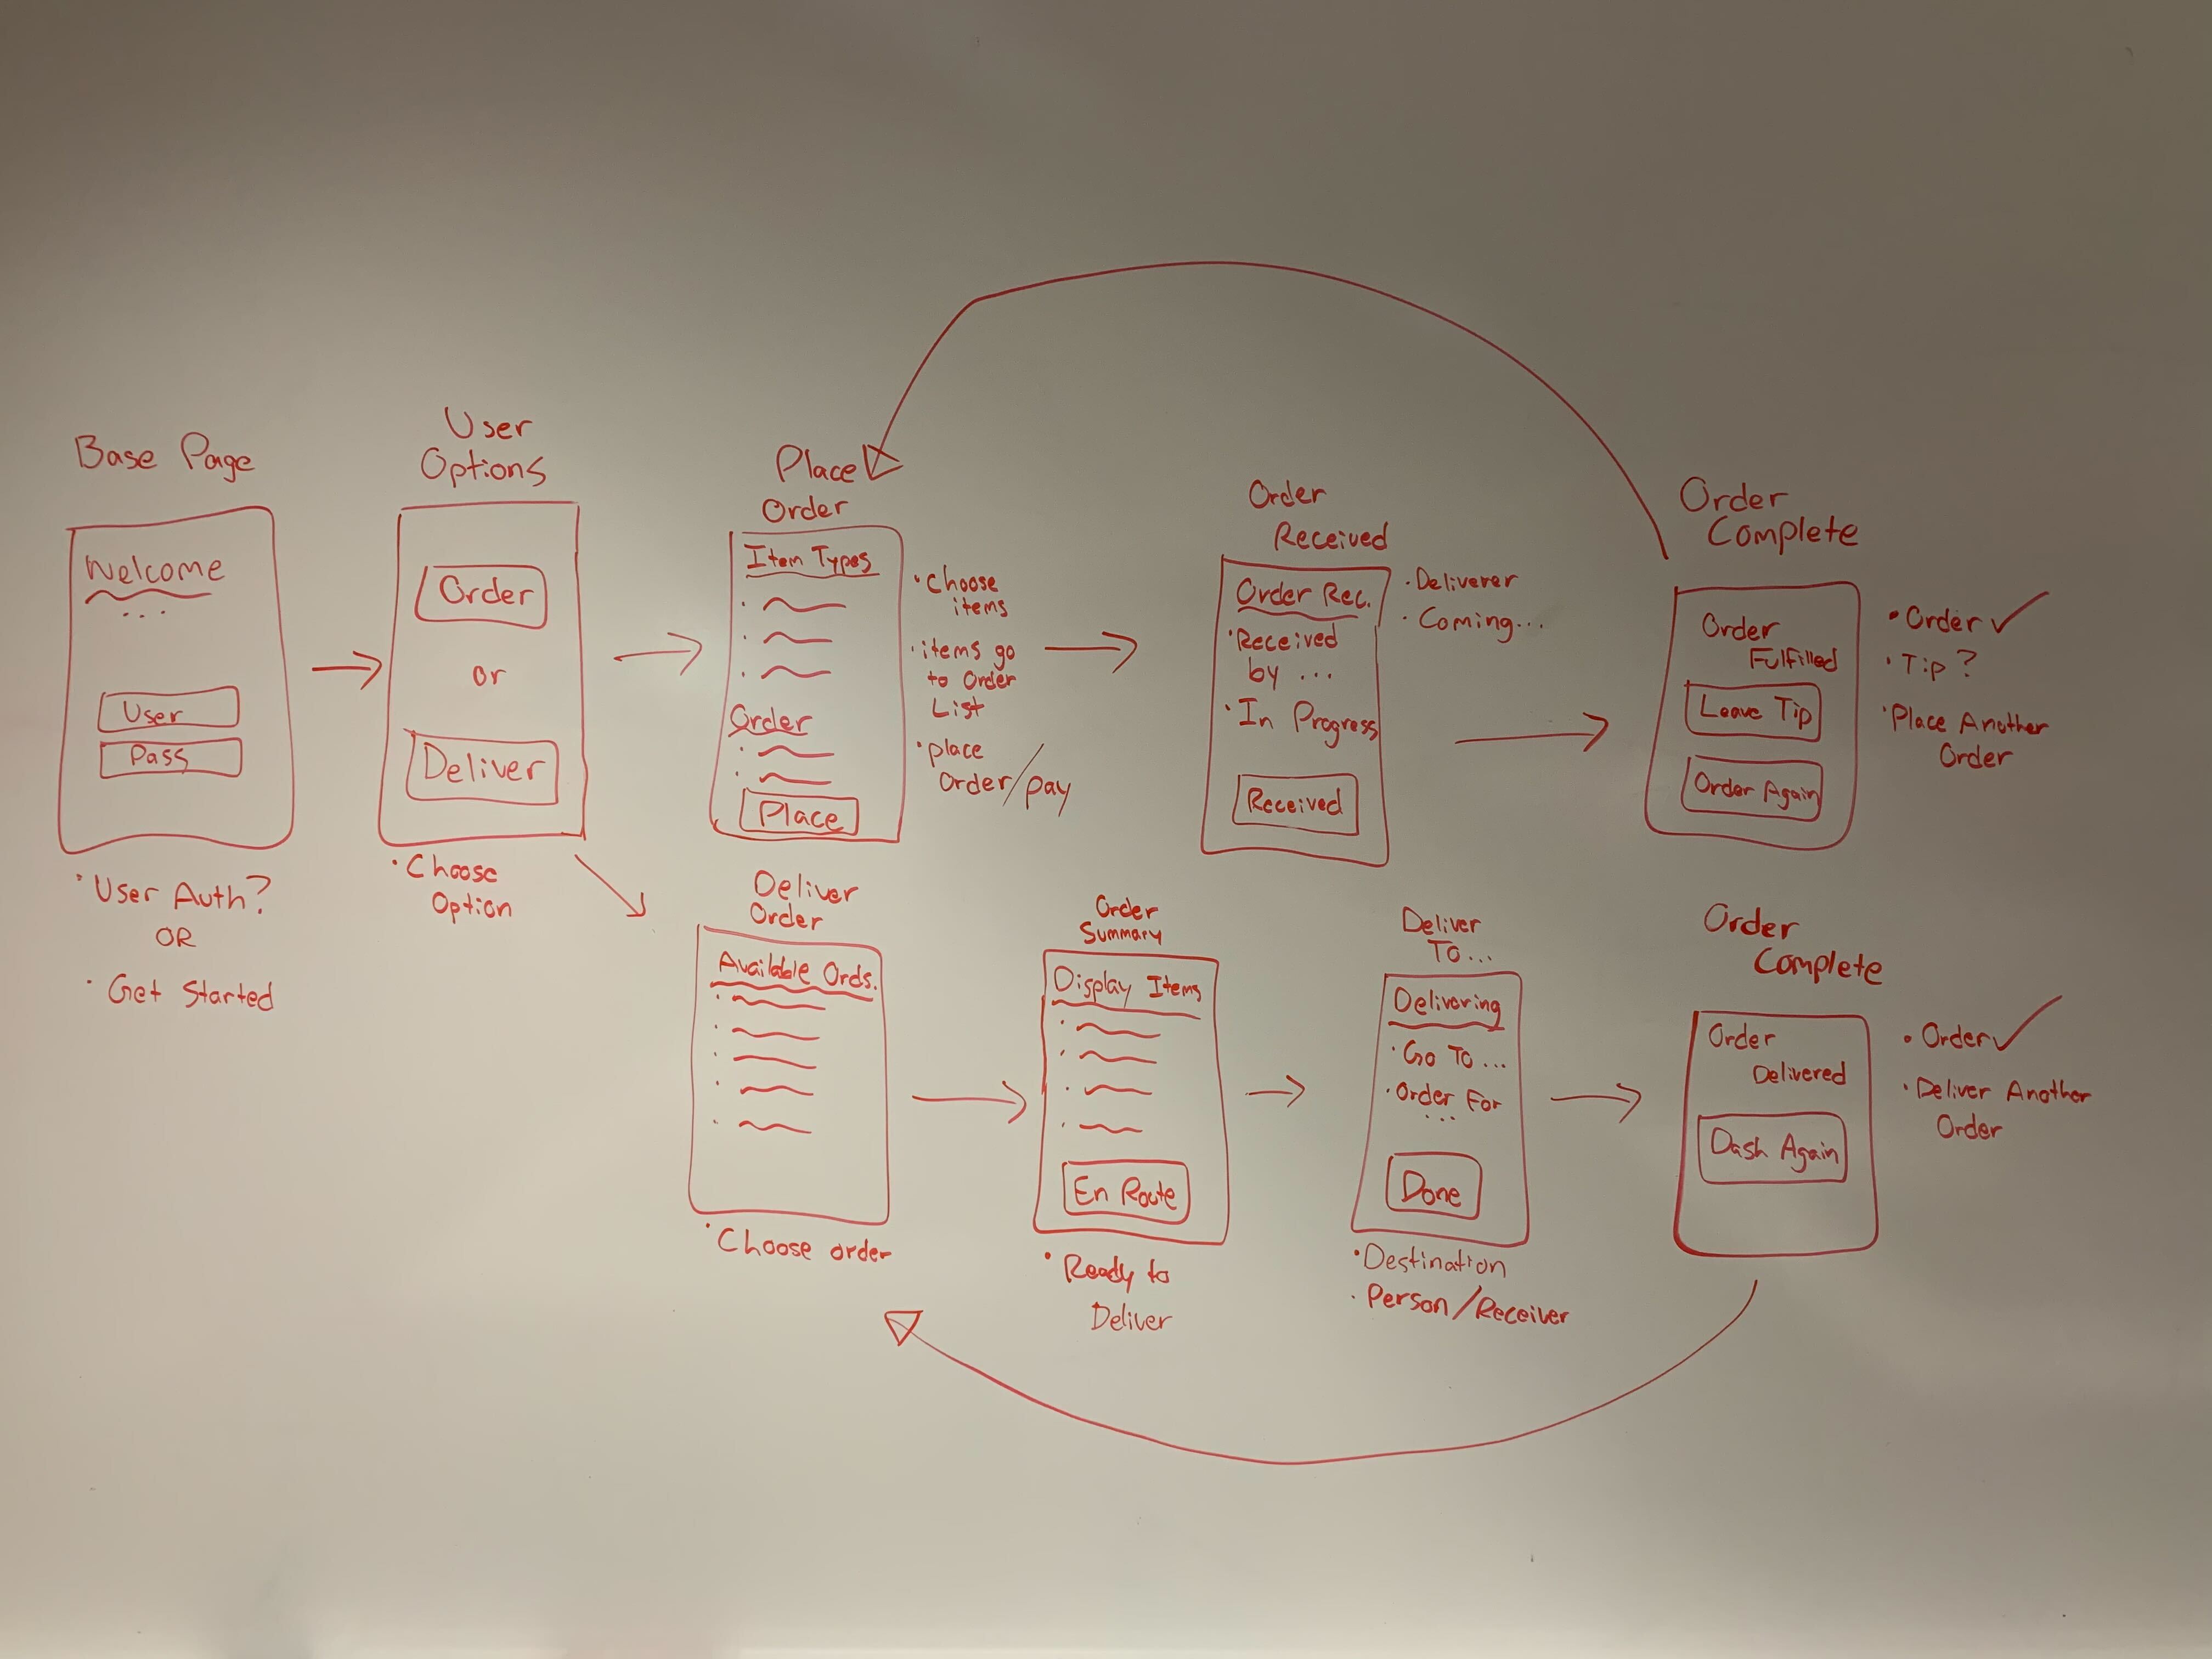 Base Page
Welcome
...
User
Pass
• User Auth?
OR
• Get Started
User
Options
Order
or
Deliver
• Choose
Option
Place
Order
Item Types
Order
Place
• Choose
items
• items go
to Order
List
• place
Order/pay
Order
Received
Order Rec.
• Received
by ...
• In Progress
Received
• Deliverer
• Coming...
Order
Complete
Order
Fulfilled
Leave Tip
Order Again
• Order ✓
• Tip?
• Place Another
Order
Deliver
Order
Available Ords.
• Choose order
Order
Summary
Display Items
En Route
• Ready to
Deliver
Deliver
To...
Delivering
• Go To...
• Order For
...
Done
• Destination
• Person/Receiver
Order
Complete
Order
Delivered
Dash Again
• Order ✓
• Deliver Another
Order